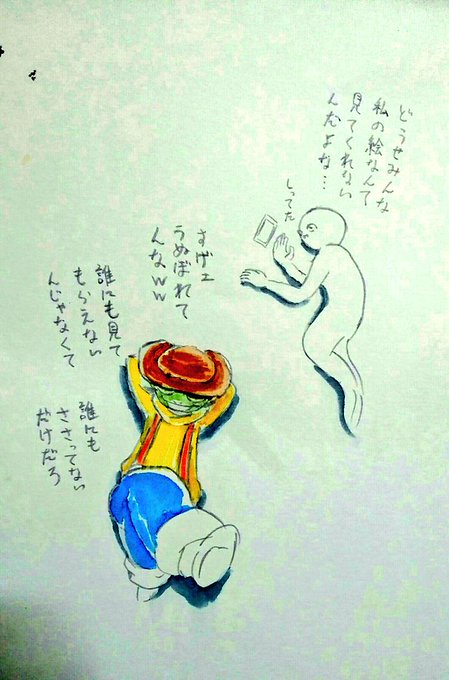 どうせみんな
私の絵なんて
見てくれない
んだよな…
しってた
すげェ
うぬぼれて
んなww
誰にも見て
もらえない
んじゃなくて
誰にも
ささってない
だけだろ